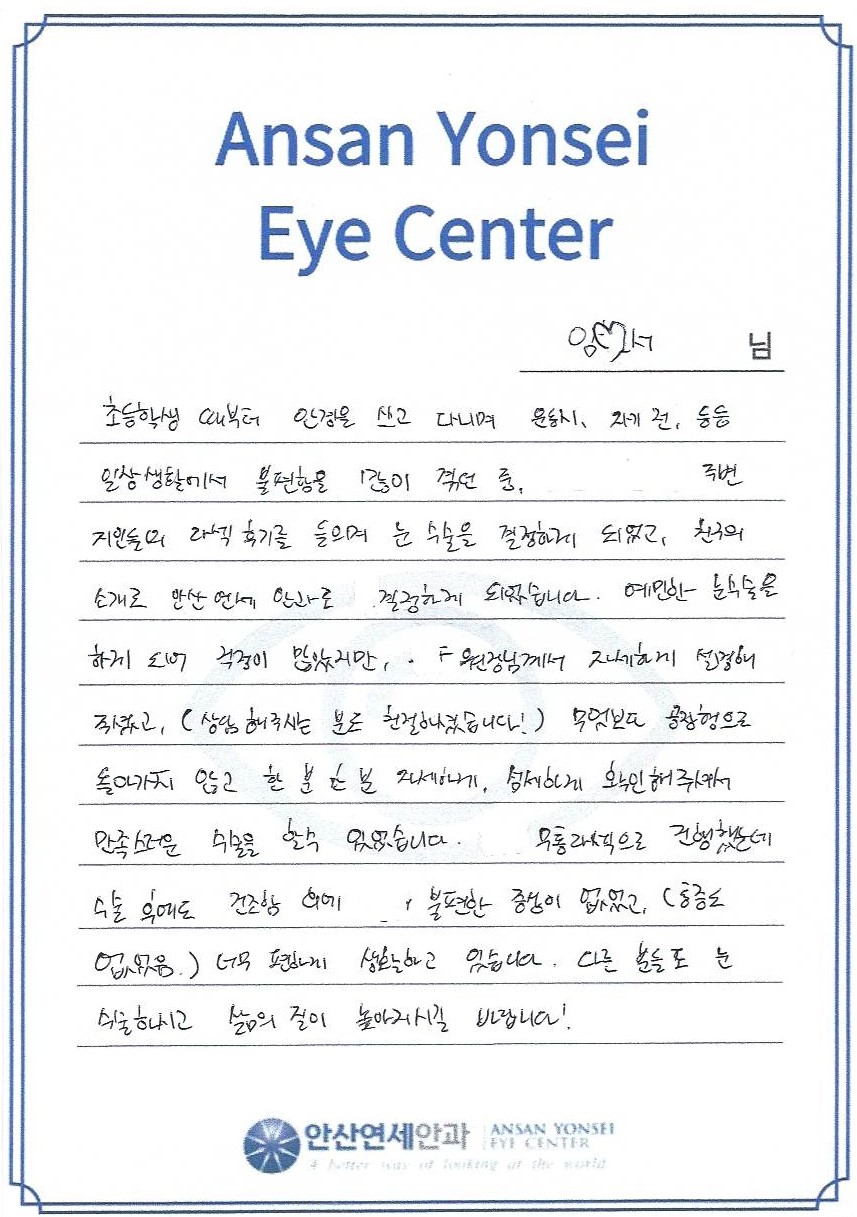 Ansan Yonsei
Eye Center
임 서 님
초등학생 때부터 안경을 쓰고 다니며 운동시, 자기 전, 등등
일상생활에서 불편함을 많이 겪던 중, 주변
지인들의 라섹 후기를 들으며 눈 수술을 결정하게 되었고, 친구의
소개로 안산 연세 안과로 결정하게 되었습니다. 예민한 눈수술을
하게 되어 걱정이 많았지만, 원장님께서 자세하게 설명해
주셨고, (상담 해주시는 분도 친절하셨습니다!) 무엇보다 공장형으로
돌아가지 않고 한 분 한 분 자세하게, 섬세하게 확인해주셔서
만족스러운 수술을 할수 있었습니다. 무통라섹으로 진행했는데
수술 후에도 건조함 외에 불편한 증상이 없었고, (통증도
없었음.) 너무 편하게 생활하고 있습니다. 다른 분들도 눈
수술하시고 삶의 질이 높아지시길 바랍니다!
안산연세안과 ANSAN YONSEI
EYE CENTER
A better way of looking at the world